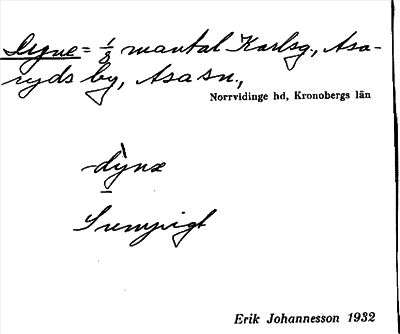 Dyne = 1/8 mantal Karlsg., Asa-
ryds by, Asa sn,
Norrvidinge hd, Kronobergs län
-dỳnæ
Sumpigt
Erik Johannesson 1932